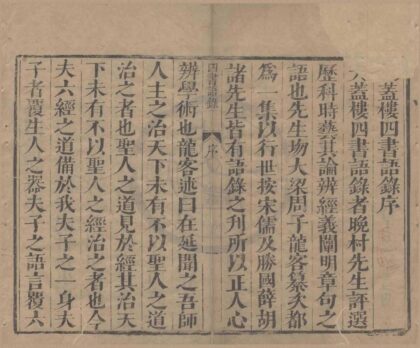 天蓋樓四書語錄序
天蓋樓四書語錄者晚村先生評選
歷科時藝其論辨經義闡明章句之
語也先生塲大梁周子龍客纂次都
為一集以行世按宋儒及勝國薛胡
諸先生皆有語錄之刊所以正人心
四書語錄 序
辨學術也龍客述曰在延聞之吾師
人主之治天下未有不以聖人之道
治之者也聖人之道見於經其治天
下未有不以聖人之經治之者也今
夫六經之道備於我夫子之一身夫
子者覆生人之器夫子之語言覆六